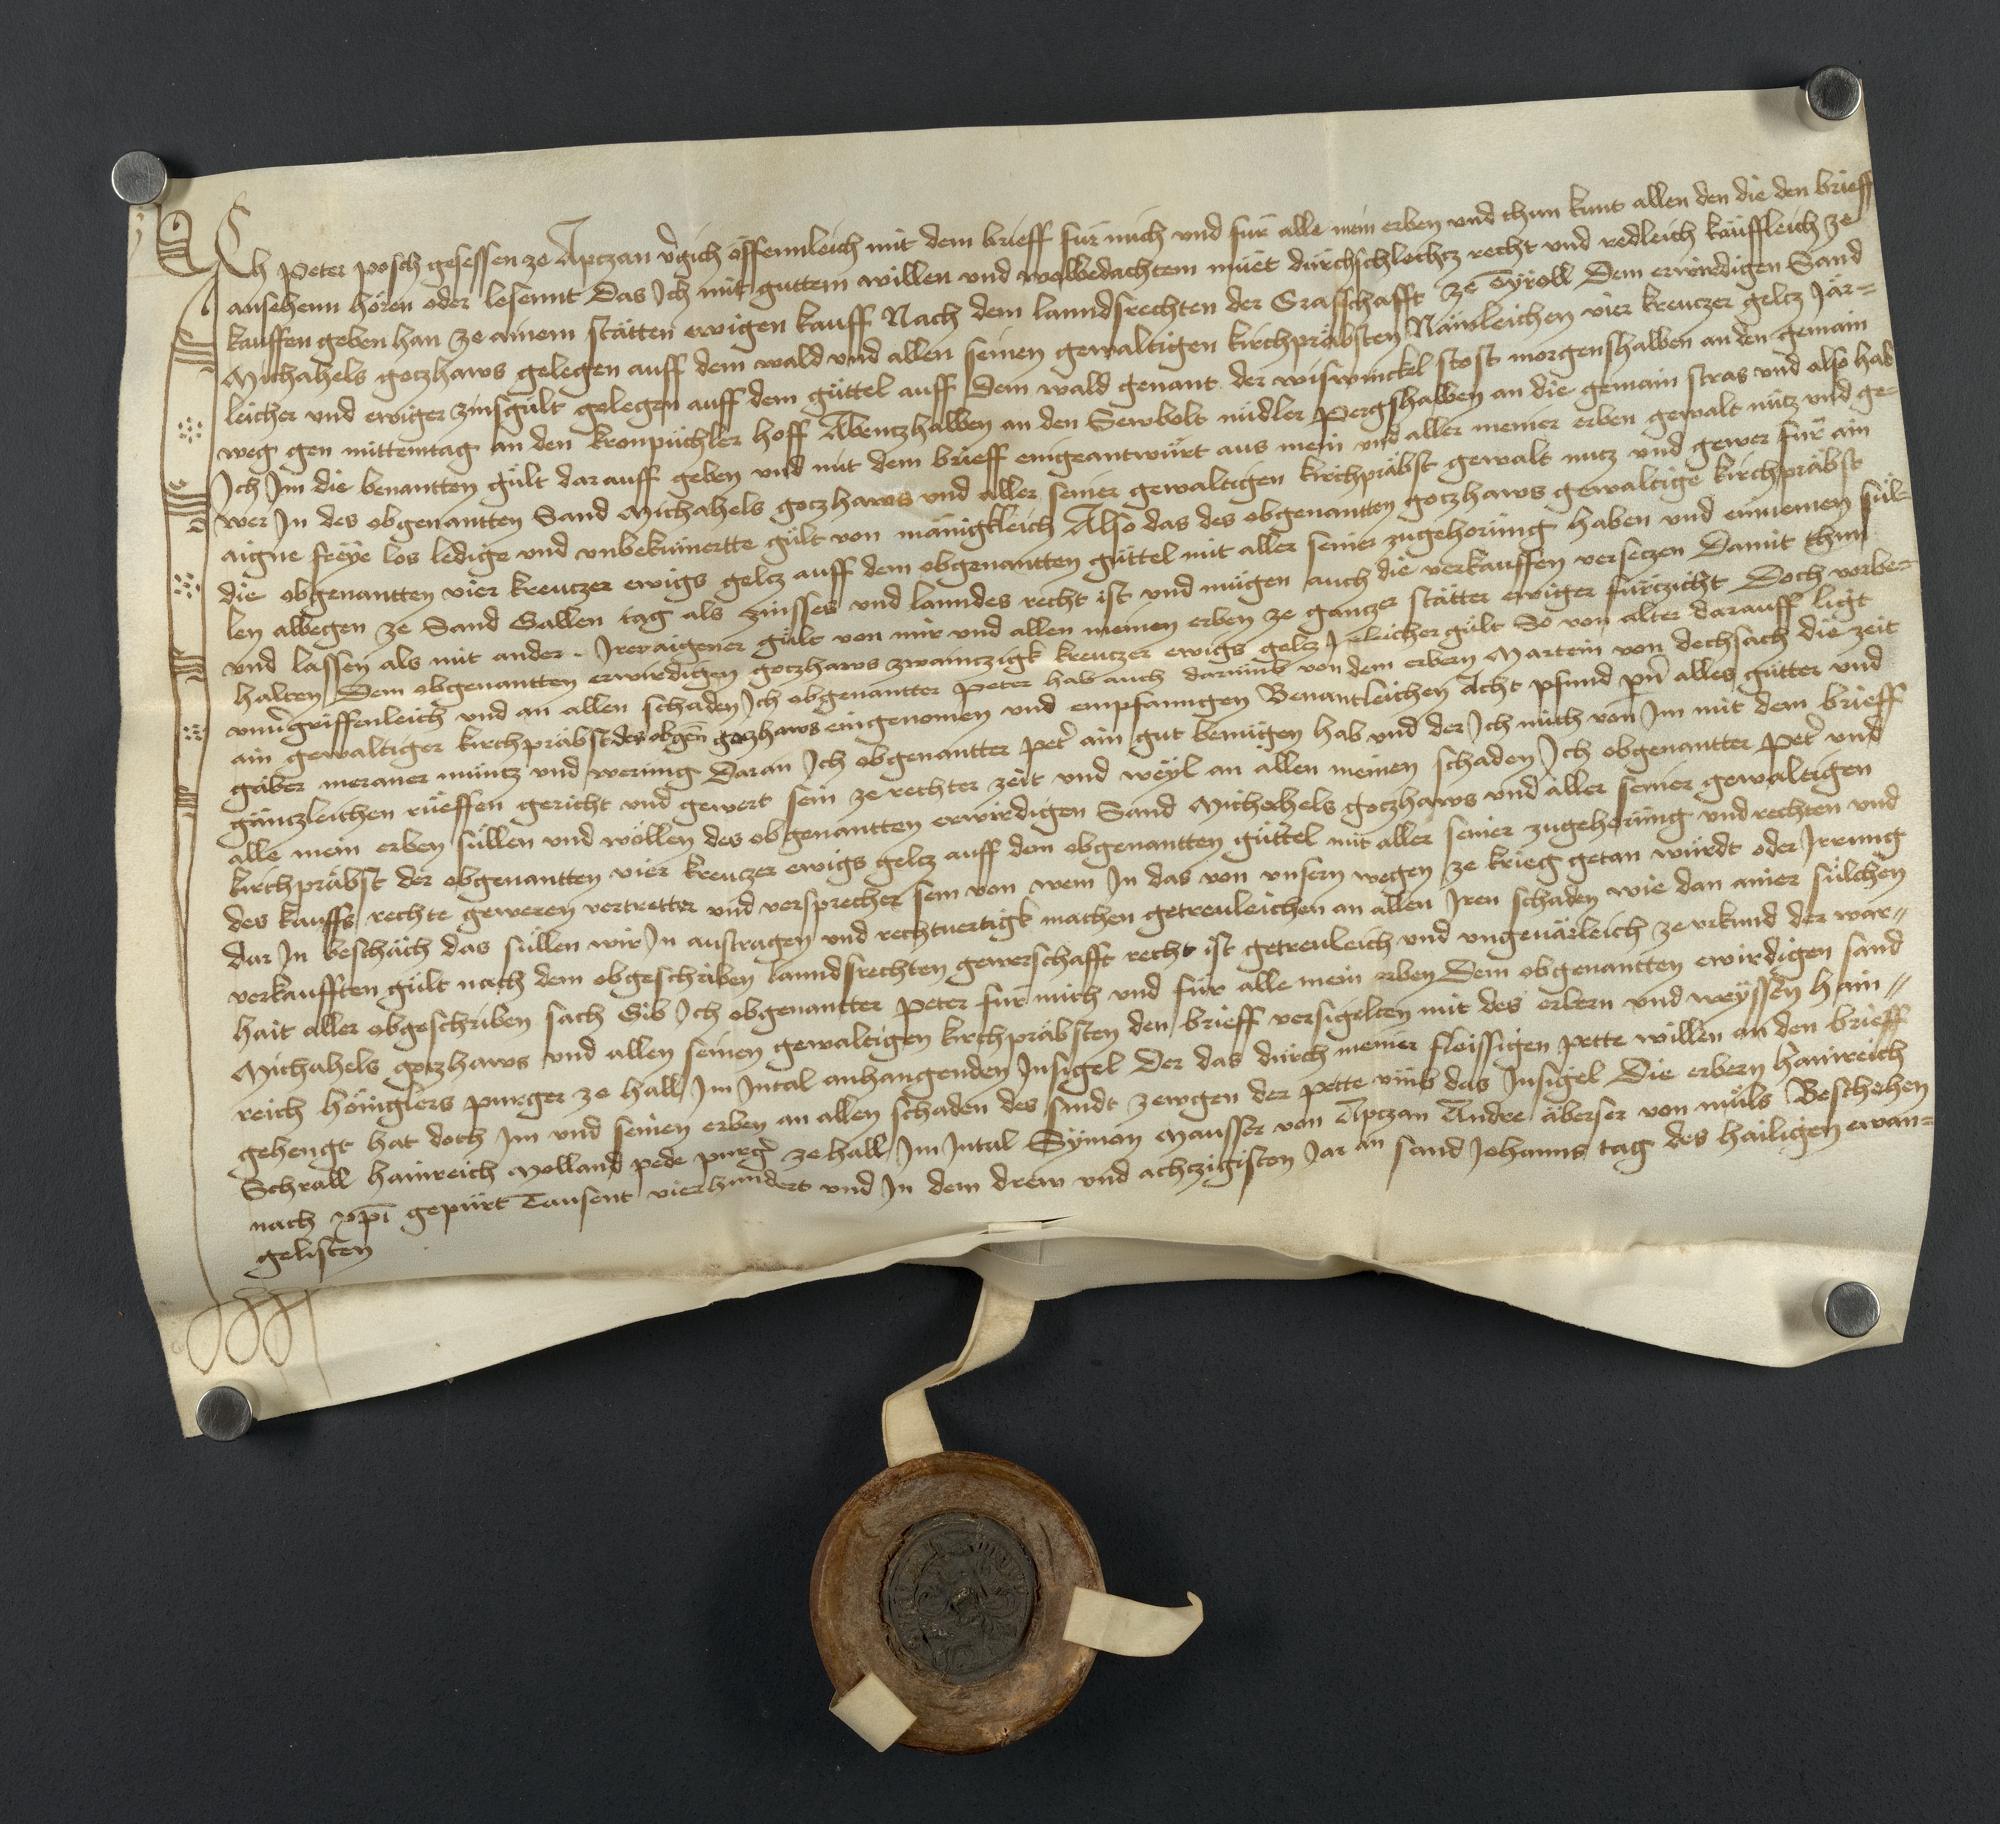 Ich Peter posch gesessen ze Aptzan v̉gich offennleich mit dem brieff für mich und für alle mein erben und thun kunt allen den die den brieff
ansehenn hören oder lesennt Das Ich mit guttem willen und wolbedachtem müet dürchschlechtz recht und redleich käuffleich ze
kauffen geben han ze ainem stätten ewigen kauff Nach dem lanndsrechten der Grafschafft ze Tyroll Dem erwirdigen Sand
Michahels gotzhaws gelegen auff dem wald und allen seinen gewaltigen kirchpräbsten Nämleichen vier kreuczer geltz Jär=
leicher und ewiger zinsgült gelegen auff dem güttel auff dem wald genant der wiswinckl stost morgenshalben an den gemain
weg gen mittemtag an den kronpüchler hoff Abentzhalben an den Sewbolt nüdler Pergshalben an die gemain stras und also hab
Ich Im die benantten gült darauff geben und mit dem brieff eingeantwürt aus mein und aller meiner erben gewalt nütz und ge
wer In des obgenantten Sand Michahels gotzhaws und aller seiner gewaltigen kirchpräbst gewalt nutz und gewer für ain
aigne freye los ledige und unbekümertte gült von mänigkleich Also das des obgenantten gotzhaws gewaltige kirchpräbst
die obgenantten vier kreuczer ewigs geltz auff dem obgenantten güttel mit aller seiner zugehorüng haben und einnemen sül=
len albegen ze Sand Gallen tag als zinsses und lanndes recht ist und mügen auch die verkauffen verseczen Damit thun
und lassen als mit ander Irer aigener gült von mir und allen meinen erben ze gantzer stätter ewiger fürtzicht Doch vorbe=
halten Dem obgenantten erwirdigen gotzhaws zwaintzigk kreuczer ewigs geltz Jerleicher gült So von alter darauff ligt
unv̉griffenleich und an allen schaden Ich obgenantter Peter hab auch darümb von dem erbern Martein von dechsach die zeit
ain gewaltiger kirchpräbst des obgen̄ gotzhaws eingenomen und empfanngen Benantleichen Acht pfund pn̄ alles gütter und
gäber meraner müntz und werüng Daran Ich obgenantter Pet̉ ain gut benügen hab und der Ich mich von Im mit dem brieff
gäntzleichen rüeffen gericht und gewert sein ze rechter zeit und weyl an allen meinen schaden Ich obgenantter Pet̉ und
alle mein erben süllen und wöllen des obgenantten erwirdigen Sand Michahels gotzhaws und aller seiner gewaltigen
kirchpräbst der obgenantten vier kreuczer ewigs geltz auff dem obgenantten güttel mit aller seiner zugehorüng und rechten und
des kauffs rechte geweren vertretter und versprecher sein von wem In das von unsern wegen ze krieg getan würdt oder Irrung
dar In beschäch das süllen wir In austragen und rechtuertigk machen getreuleichen an allen Iren schaden wie dan ainer sülchen
verkaufften gült nach dem obgeschriben lanndsrechten gewerschafft recht ist getreuleich und ungeuärleich ze urkund der war=
hait aller obgeschriben sach Gib Ich obgenantter Peter für mich und für alle mein erben Dem obgenantten ewirdigen sand
Michahels gotzhaws und allen seinen gewaltigen kirchpräbsten den brieff versigelten mit des erbern und weyssen hain=
reich höniglers purger ze hall Im Intal anhangenden Insigel Der das dürch meiner fleissigen pette willen an den brieff
gehengt hat doch Im und seinen erben an allen schaden des sindt zewgen der pette umb das Insigel Die erbern hainreich
Schrall hainreich Molland pede purg̉ ze hall Im Intal Symon Mausser von Aptzan Andre äberser von müls Beschehen
nach xp̄i gepürt Tausent vierhundert und In dem drew und achtzigisten Iar an sand Johanns tag des hailigen ewan=
gelisten